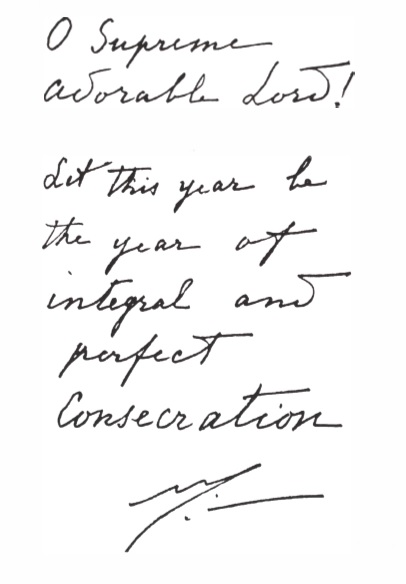 O Supreme
adorable Lord!
Let this year be
the year of
integral and
perfect
Consecration